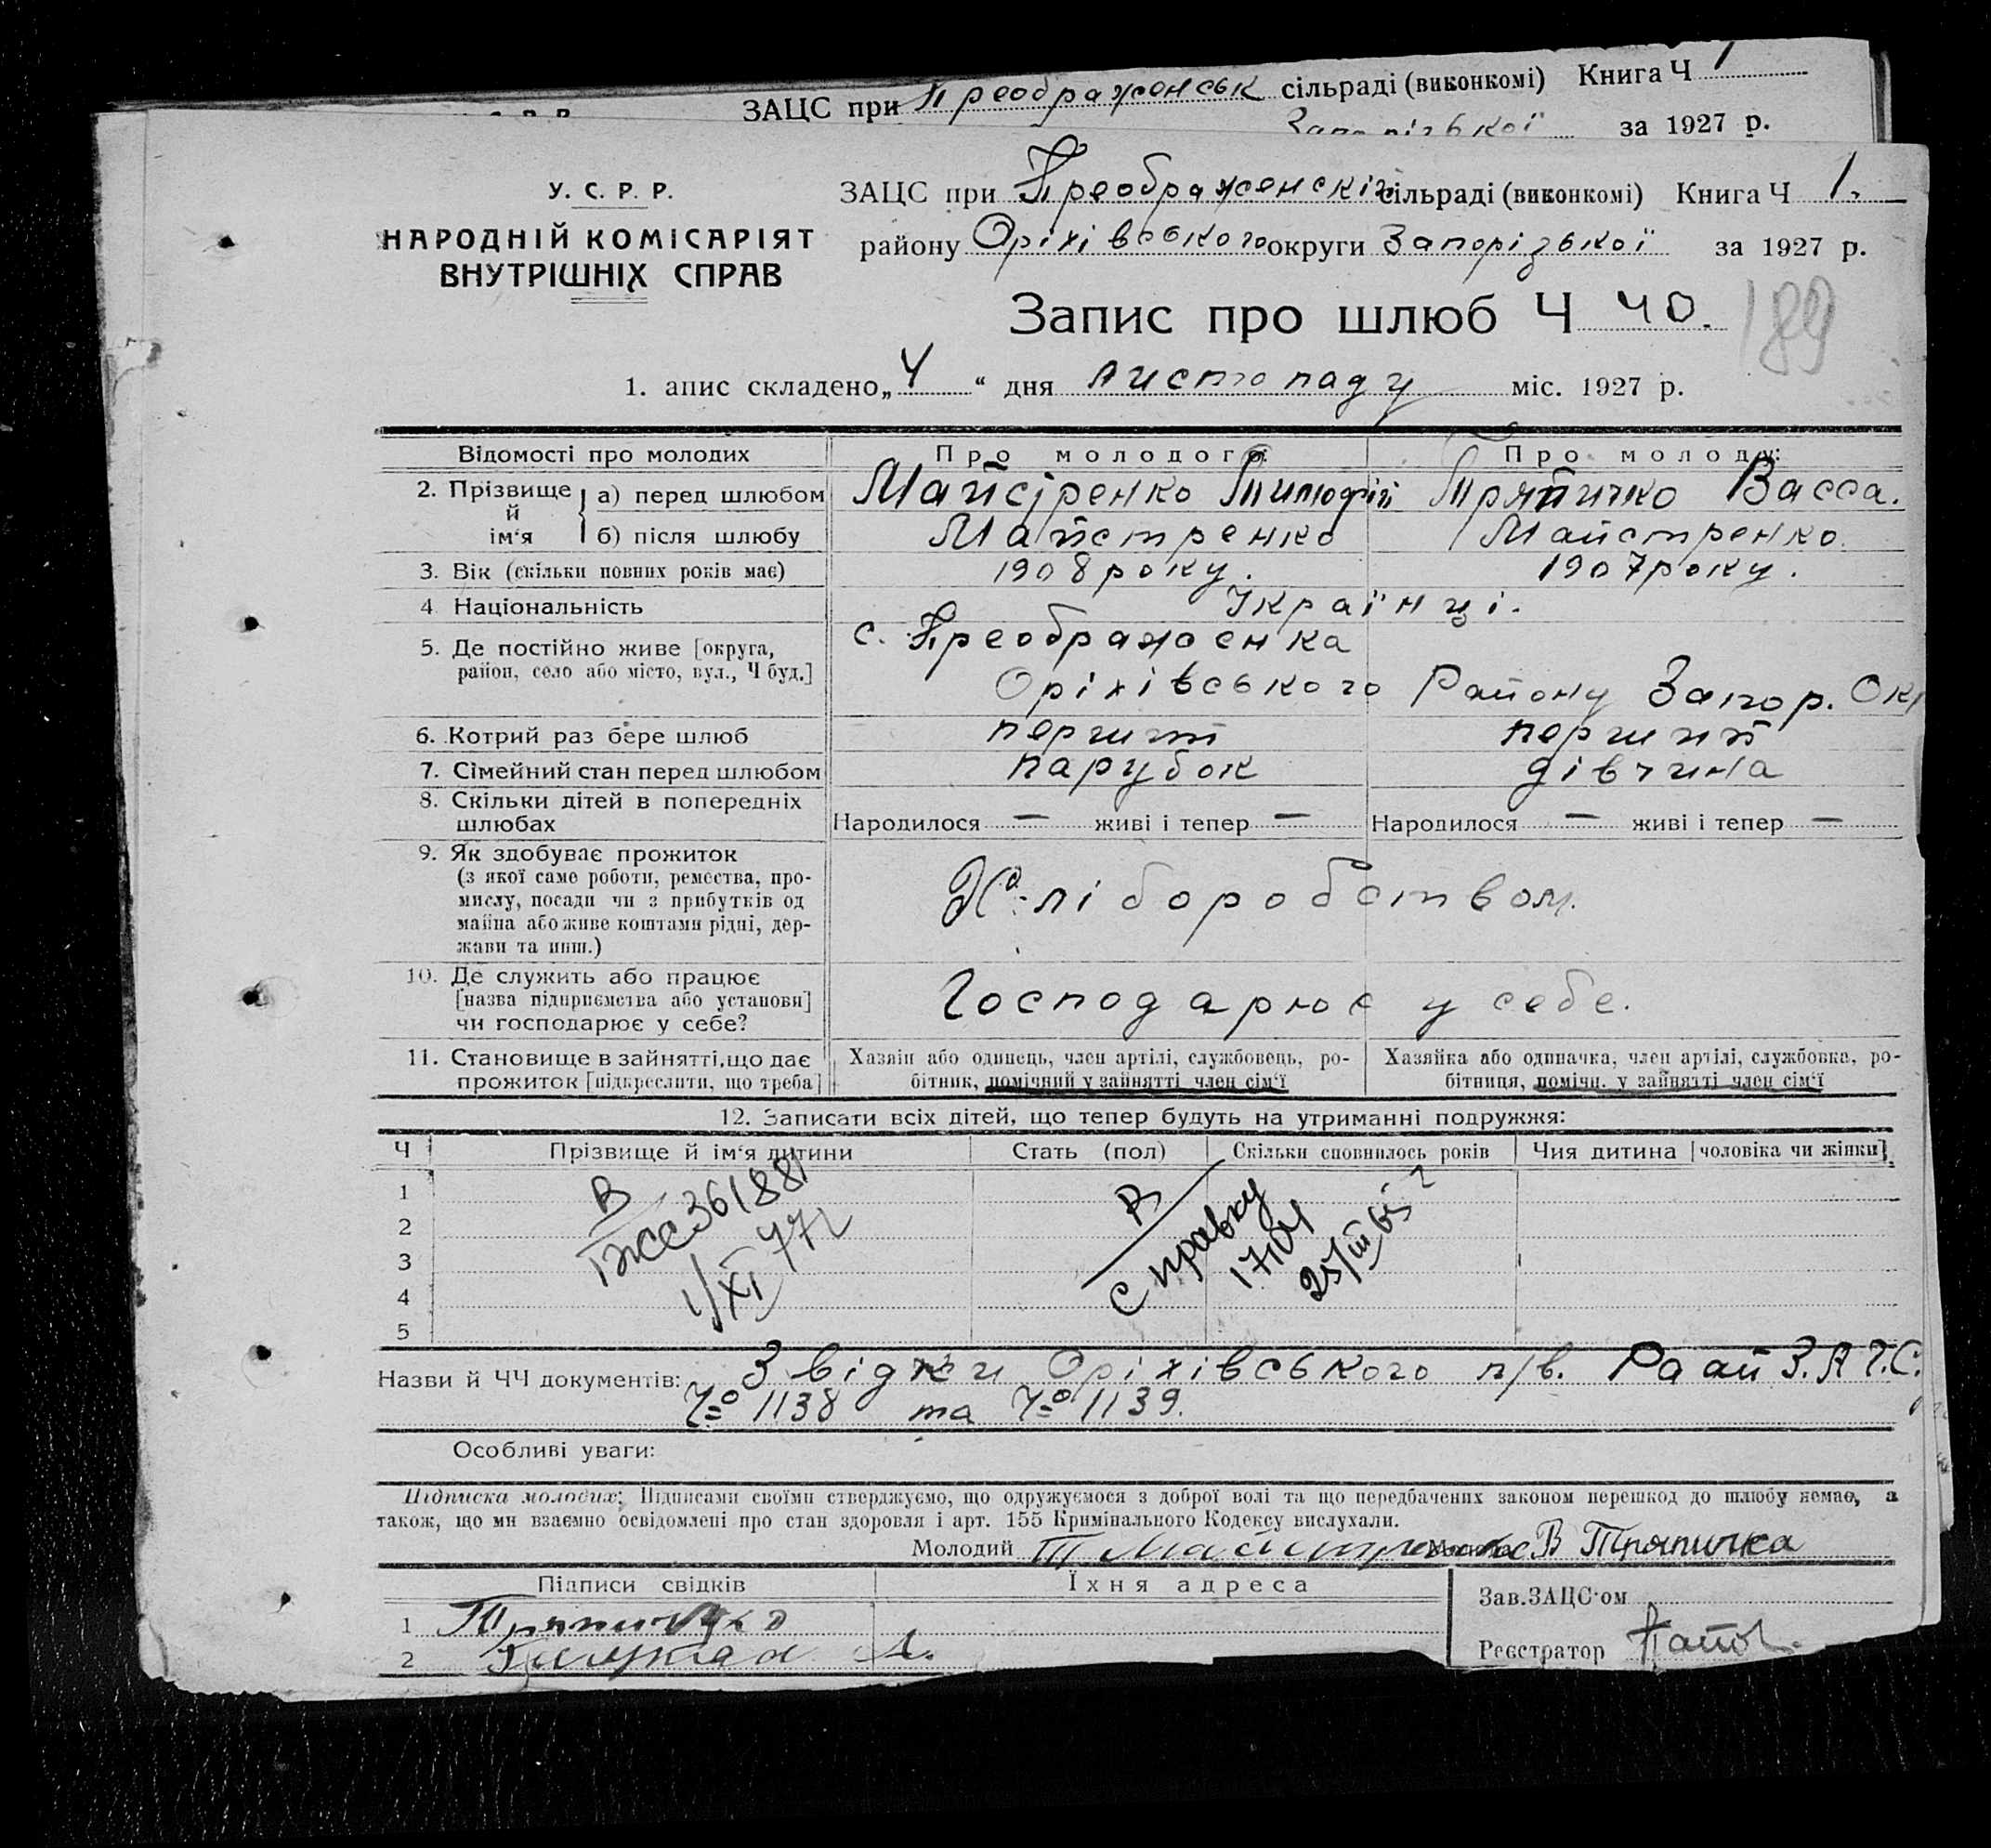 ЗАЦС при Преображенськ сільраді (виконкомі) Книга Ч 1
Запорізької за 1927 р.
У. С. Р. Р.
НАРОДНІЙ КОМІСАРІЯТ
ВНУТРІШНІХ СПРАВ
ЗАЦС при Преображенскій сільраді (виконкомі) Книга Ч 1.
району Оріхівського округи Запорізької за 1927 р.
Запис про шлюб Ч 40.
189
1. апис складено „4“ дня листопаду міс. 1927 р.
Відомості про молодих
Про молодого:
Про молоду:
2. Прізвище й ім‘я
а) перед шлюбом
Майстренко Тимофій
Тряпичко Васса.
б) після шлюбу
Майстренко
Майстренко.
3. Вік (скільки повних років має)
1908 року.
1907 року.
4 Національність
Українці.
5. Де постійно живе [округа,
район, село або місто, вул., Ч буд.]
с. Преображенка
Оріхівського Району Запор. Окр
6. Котрий раз бере шлюб
перший
перший
7. Сімейний стан перед шлюбом
парубок
дівчина
8. Скільки дітей в попередніх
шлюбах
Народилося — живі і тепер —
Народилося — живі і тепер —
9. Як здобуває прожиток
(з якої саме роботи, ремества, про-
мислу, посади чи з прибутків од
майна або живе коштами рідні, дер-
жави та инш.)
Хліборобством.
10. Де служить або працює
[назва підприємства або установи]
чи господарює у себе?
Господарює у себе.
11. Становище в зайнятті, що дає
прожиток [підкреслити, що треба]
Хазяїн або одинець, член артілі, службовець, ро-
бітник, помічний у зайнятті член сім‘ї
Хазяйка або одиначка, член артілі, службовка, ро-
бітниця, помічн. у зайнятті член сім‘ї
12. Записати всіх дітей, що тепер будуть на утриманні подружжя:
Ч
Прізвище й ім‘я дитини
Стать (пол)
Скільки сповнилось років
Чия дитина [чоловіка чи жінки]
1
2
3
4
5
В
361881
1/XI 77г
В
Справку
25/III 65 г
Назви й ЧЧ документів: Звідки Оріхівського п/в. Раай З.А.Г.С.
Ч= 1138 та Ч= 1139.
Особливі уваги:
Підписка молодих: Підписами своїми стверджуємо, що одружуємося з доброї волі та що передбачених законом перешкод до шлюбу немає, а
також, що ми взаємно освідомлені про стан здоровля і арт. 155 Кримінального Кодексу вислухали.
Молодий Т Майстренко Молода В Тряпичка
Підписи свідків
Їхня адреса
1 Тряпичко
2
Зав. ЗАЦС‘ом
Реєстратор